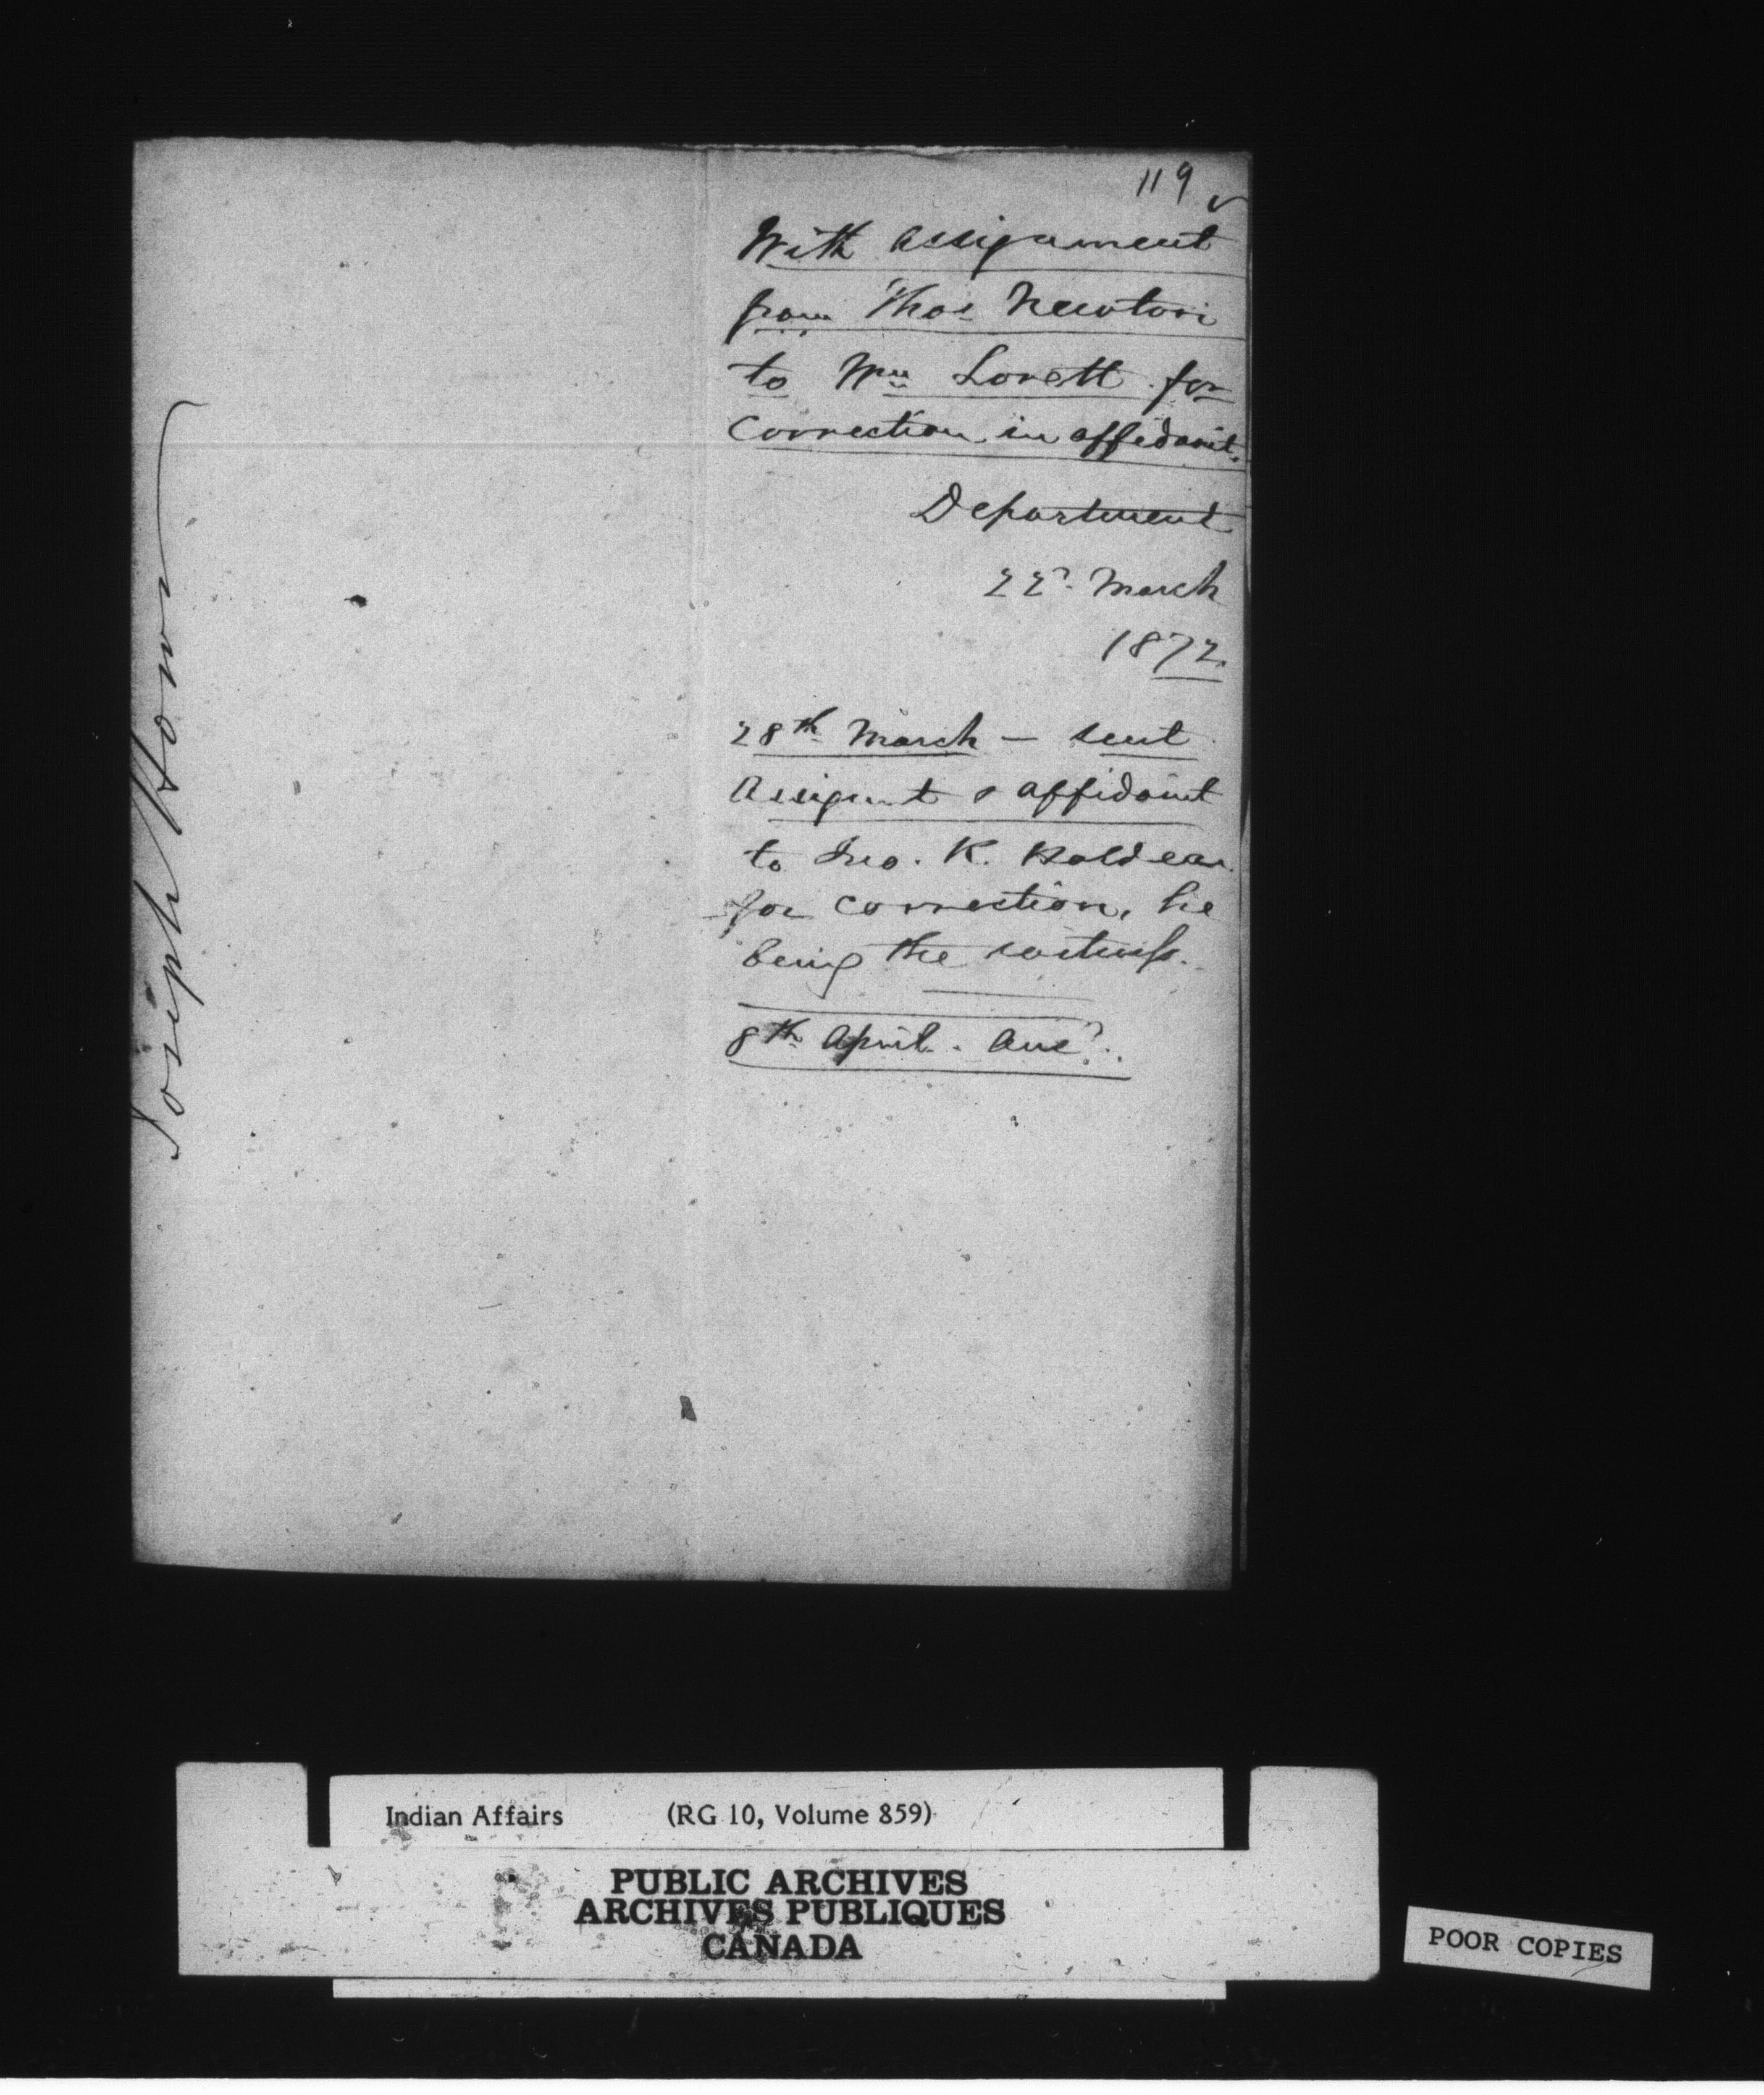 119
With assignment
from Thos Newton
to Wm Lovett for
correction in affidavit.
Department
22d. March
1872.
28th March — sent
Assignt & affidavit
to Jno. K.
for correction, he
being the witness.
8th April. Ansd.
Joseph Howe
Indian Affairs (RG 10, Volume 859)
PUBLIC ARCHIVES
ARCHIVES PUBLIQUES
CANADA
POOR COPIES